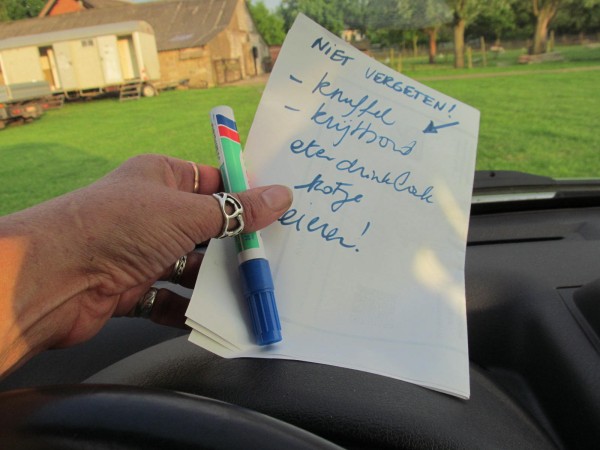 NIET VERGETEN!
- knuffel
- krijtbord
eter drinkbak
kotje
eieren!